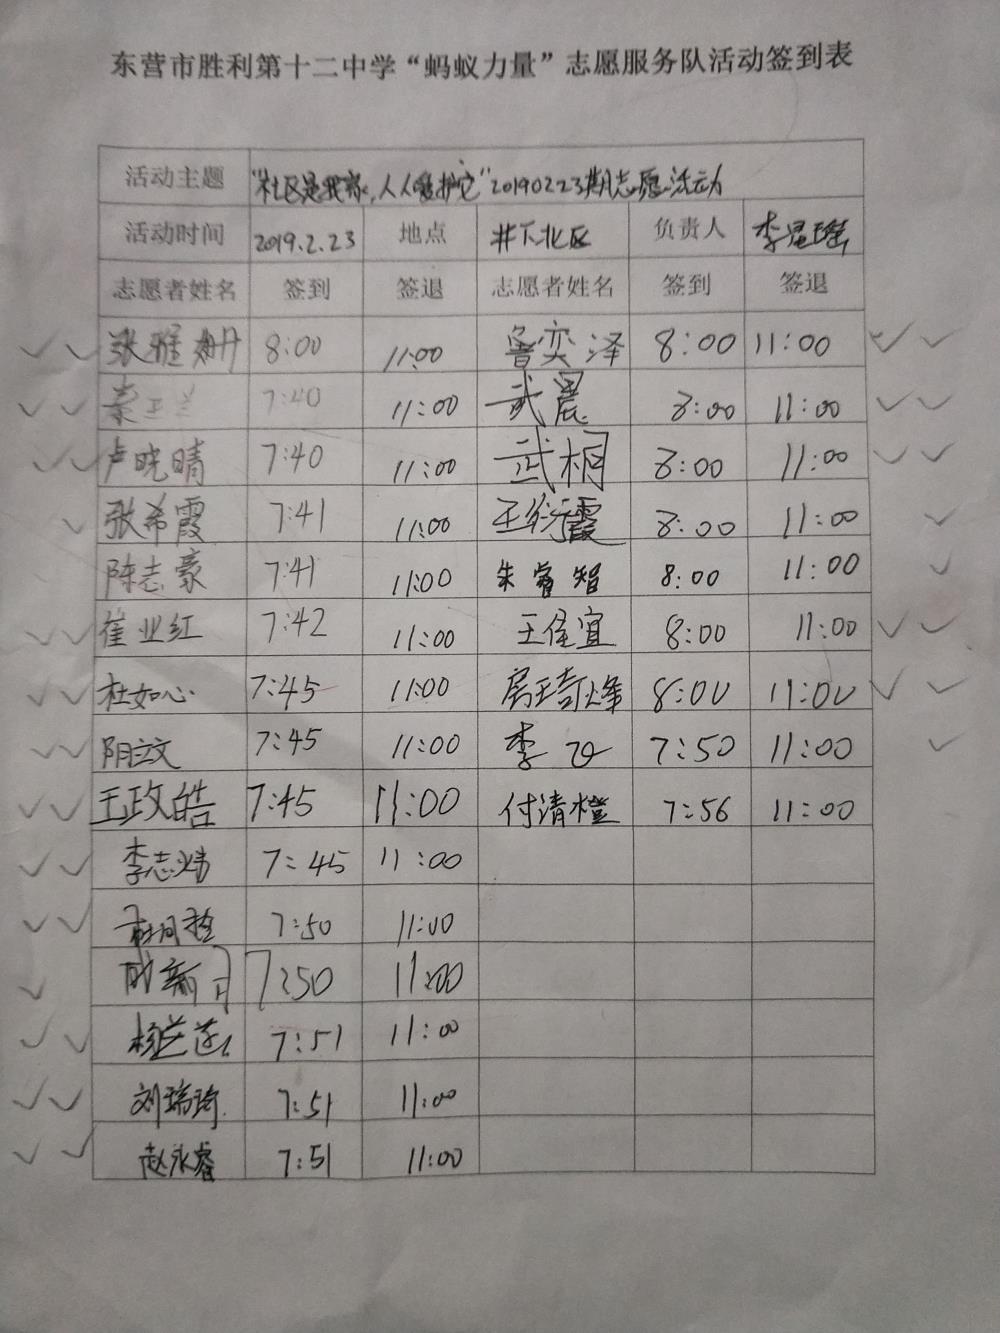 东营市胜利第十二中学“蚂蚁力量”志愿服务队活动签到表
活动主题 “社区是我家,人人爱护它”20190223期志愿活动
活动时间 2019.2.23 地点 井下北区 负责人 李
志愿者姓名 签到 签退 志愿者姓名 签到 签退
张雅 8:00 11:00 鲁奕泽 8:00 11:00
秦玉兰 7:40 11:00 武晨 8:00 11:00
卢晓晴 7:40 11:00 武桐 8:00 11:00
张希霞 7:41 11:00 王衍霞 8:00 11:00
陈志豪 7:41 11:00 朱睿智 8:00 11:00
崔业红 7:42 11:00 王佳宜 8:00 11:00
杜如心 7:45 11:00 房琦烽 8:00 11:00
阴立文 7:45 11:00 李 7:50 11:00
王政皓 7:45 11:00 付清橙 7:56 11:00
李志炜 7:45 11:00
7:50 11:00
7:50 11:00
杨兰莲 7:51 11:00
刘瑞琦 7:51 11:00
赵永睿 7:51 11:00